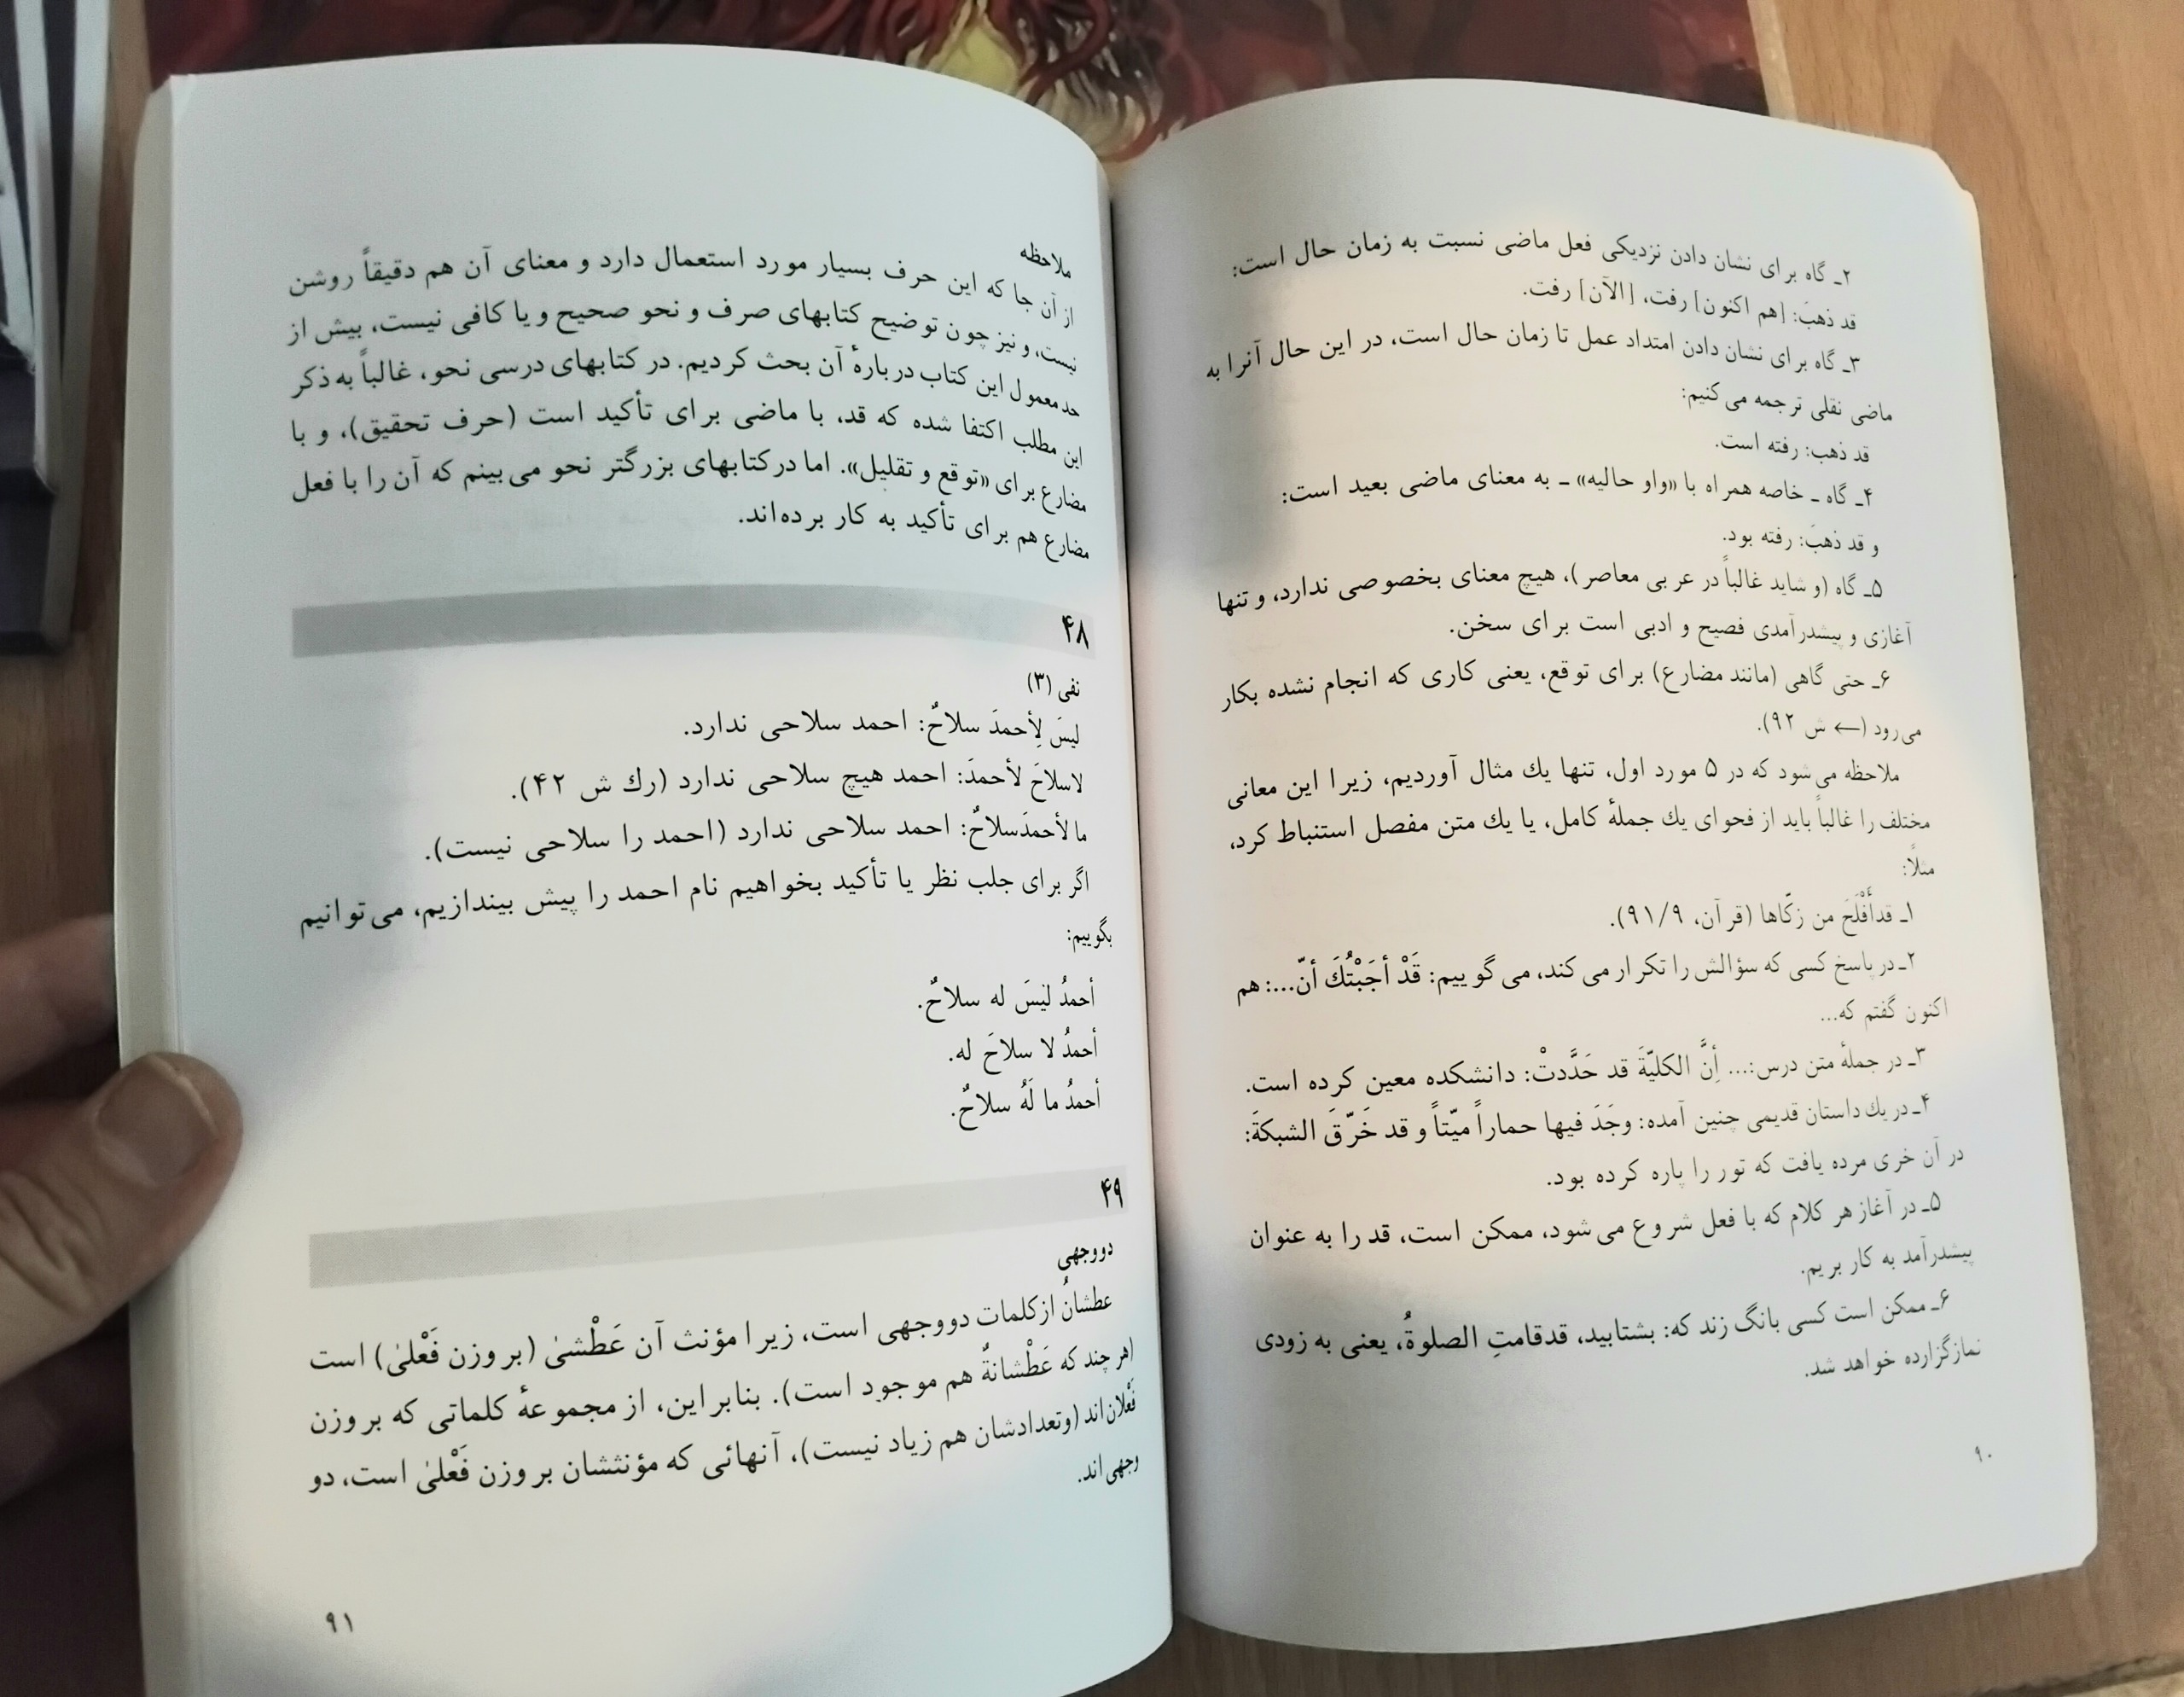 ۲ـ گاه برای نشان دادن نزدیکی فعل ماضی نسبت به زمان حال است:
قد ذهبَ: [هم اکنون] رفت، [الآن] رفت.
۳ـ گاه برای نشان دادن امتداد عمل تا زمان حال است، در این حال آنرا به
ماضی نقلی ترجمه می‌کنیم:
قد ذهب: رفته است.
۴ـ گاه ـ خاصه همراه با «واو حالیه» ـ به معنای ماضی بعید است:
و قد ذهبَ: رفته بود.
۵ـ گاه (و شاید غالباً در عربی معاصر)، هیچ معنای بخصوصی ندارد، و تنها
آغازی و پیشدرآمدی فصیح و ادبی است برای سخن.
۶ـ حتی گاهی (مانند مضارع) برای توقع، یعنی کاری که انجام نشده بکار
می‌رود (← ش ۹۲).
ملاحظه می‌شود که در ۵ مورد اول، تنها یك مثال آوردیم، زیرا این معانی
مختلف را غالباً باید از فحوای یك جملهٔ کامل، یا یك متن مفصل استنباط کرد،
مثلاً:
۱ـ قدأَفْلَحَ من زکّاها (قرآن، ۹۱/۹).
۲ـ در پاسخ کسی که سؤالش را تکرار می‌کند، می‌گوییم: قَدْ أجَبْتُكَ أنّ...: هم
اکنون گفتم که...
۳ـ در جملهٔ متن درس:... أِنَّ الکلیّةَ قد حَدَّدتْ: دانشکده معین کرده است.
۴ـ در یك داستان قدیمی چنین آمده: وجَدَ فیها حماراً میّتاً و قد خَرّقَ الشبکةَ:
در آن خری مرده یافت که تور را پاره کرده بود.
۵ـ در آغاز هر کلام که با فعل شروع می‌شود، ممکن است، قد را به عنوان
پیشدرآمد به کار بریم.
۶ـ ممکن است کسی بانگ زند که: بشتابید، قدقامتِ الصلوةُ، یعنی به زودی
نماز گزارده خواهد شد.
۹۰
ملاحظه
از آن جا که این حرف بسیار مورد استعمال دارد و معنای آن هم دقیقاً روشن
نیست، و نیز چون توضیح کتابهای صرف و نحو صحیح و یا کافی نیست، بیش از
حد معمول این کتاب دربارهٔ آن بحث کردیم. در کتابهای درسی نحو، غالباً به ذکر
این مطلب اکتفا شده که قد، با ماضی برای تأکید است (حرف تحقیق)، و با
مضارع برای «توقع و تقلیل». اما در کتابهای بزرگتر نحو می‌بینم که آن را با فعل
مضارع هم برای تأکید به کار برده‌اند.
۴۸
نفی (۳)
لیسَ لِأحمدَ سلاحٌ: احمد سلاحی ندارد.
لاسلاحَ لأحمدَ: احمد هیچ سلاحی ندارد (رك ش ۴۲).
ما لأحمدَ سلاحٌ: احمد سلاحی ندارد (احمد را سلاحی نیست).
اگر برای جلب نظر یا تأکید بخواهیم نام احمد را پیش بیندازیم، می‌توانیم
بگوییم:
أحمدُ لیسَ له سلاحٌ.
أحمدُ لا سلاحَ له.
أحمدُ ما لَهُ سلاحٌ.
۴۹
دووجهی
عطشانُ از کلمات دووجهی است، زیرا مؤنث آن عَطْشیٰ (بر وزن فَعْلیٰ) است
(هر چند که عَطْشانةٌ هم موجود است). بنابراین، از مجموعهٔ کلماتی که بر وزن
فَعْلان‌اند (وتعدادشان هم زیاد نیست)، آنهائی که مؤنثشان بر وزن فَعْلیٰ است، دو
وجهی‌اند.
۹۱